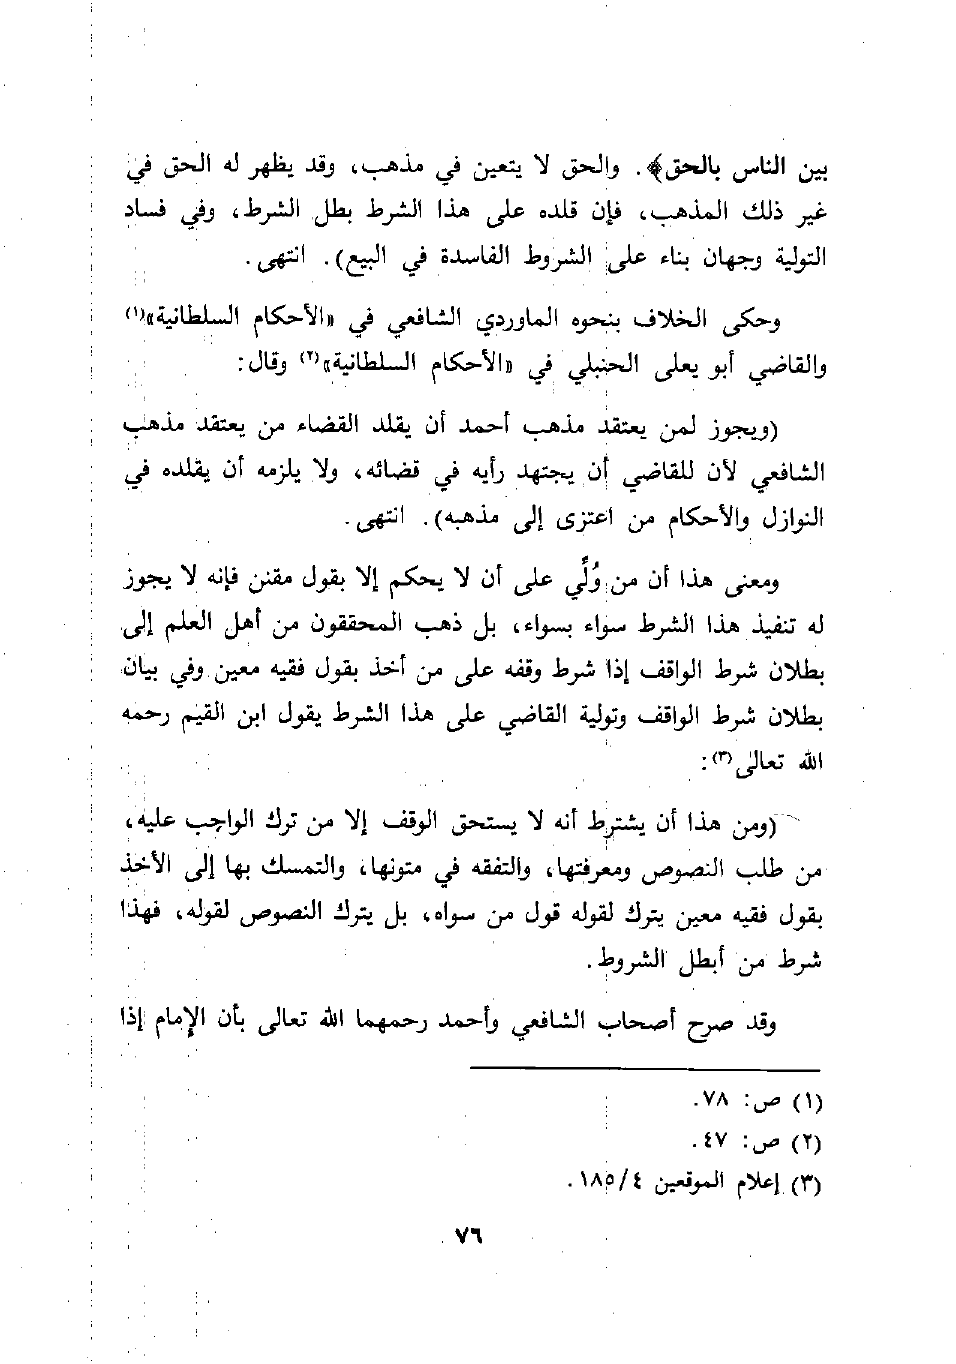 بين الناس بالحق﴾. والحق لا يتعين في مذهب، وقد يظهر له الحق في
غير ذلك المذهب، فإن قلده على هذا الشرط بطل الشرط، وفي فساد
التولية وجهان بناء على الشروط الفاسدة في البيع). انتهى.
وحكى الخلاف بنحوه الماوردي الشافعي في «الأحكام السلطانية»(١)
والقاضي أبو يعلى الحنبلي في «الأحكام السلطانية»(٢) وقال:
(ويجوز لمن يعتقد مذهب أحمد أن يقلد القضاء من يعتقد مذهب
الشافعي لأن للقاضي أن يجتهد رأيه في قضائه، ولا يلزمه أن يقلده في
النوازل والأحكام من اعتزى إلى مذهبه). انتهى.
ومعنى هذا أن من وُلِّي على أن لا يحكم إلا بقول مقنن فإنه لا يجوز
له تنفيذ هذا الشرط سواء بسواء، بل ذهب المحققون من أهل العلم إلى
بطلان شرط الواقف إذا شرط وقفه على من أخذ بقول فقيه معين وفي بيان
بطلان شرط الواقف وتولية القاضي على هذا الشرط يقول ابن القيم رحمه
الله تعالى(٣):
(ومن هذا أن يشترط أنه لا يستحق الوقف إلا من ترك الواجب عليه،
من طلب النصوص ومعرفتها، والتفقه في متونها، والتمسك بها إلى الأخذ
بقول فقيه معين يترك لقوله قول من سواه، بل يترك النصوص لقوله، فهذا
شرط من أبطل الشروط.
وقد صرح أصحاب الشافعي وأحمد رحمهما الله تعالى بأن الإمام إذا
(١) ص: ٧٨.
(٢) ص: ٤٧.
(٣) إعلام الموقعين ٤/ ١٨٥.
٧٦